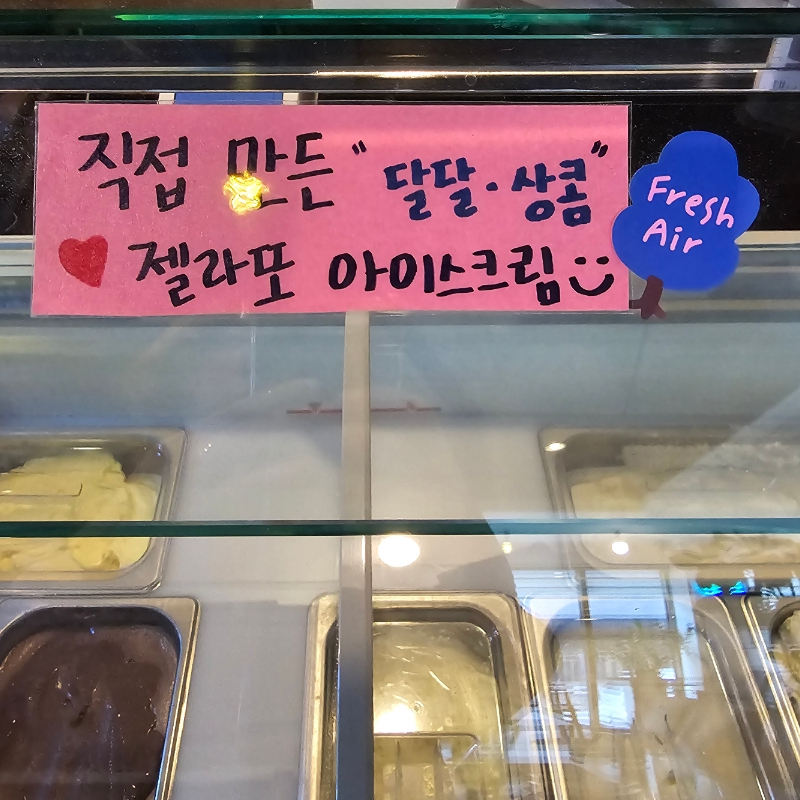 직접 만든 "달달·상콤"
젤라또 아이스크림
Fresh
Air